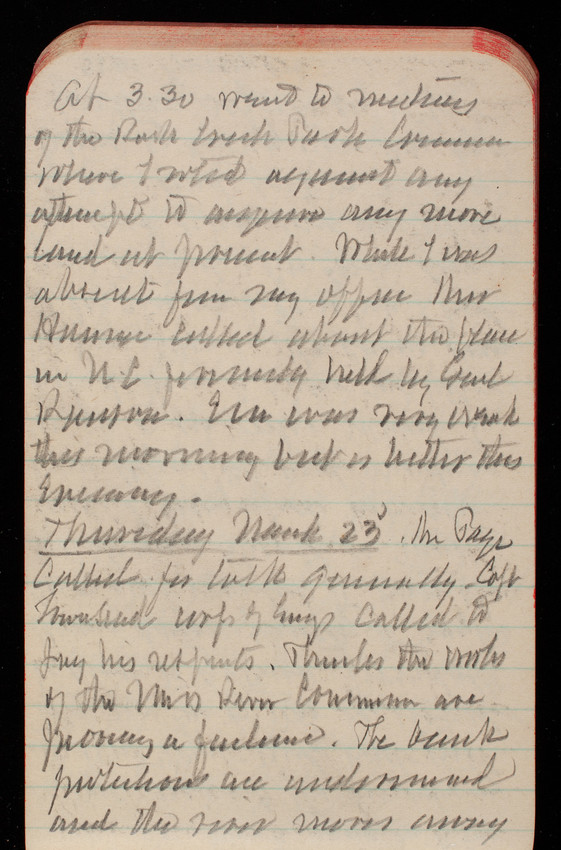 At 3.30 went to meeting
of the Rock Creek Park Commn
where I voted against any
attempt to acquire any more
land at present. While I was
absent from my office Mrs
called about the place
in N.C. formerly held by Genl
Ransom. Em was very weak
this morning but is better this
Evening.
Thursday March 23d. Mr Page
Called for talk generally. Capt
Townsend Corps of Engs called to
pay his respects. Thinks the works
of the Miss River Commn are
proving a failure. The bank
protections are undermined
and the river moves away